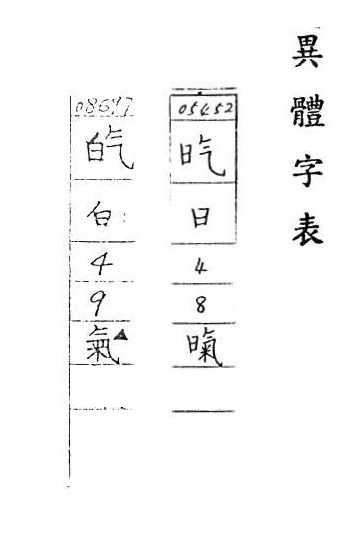 異體字表
05452
日
4
8
暣
08697
白
4
9
氣▲